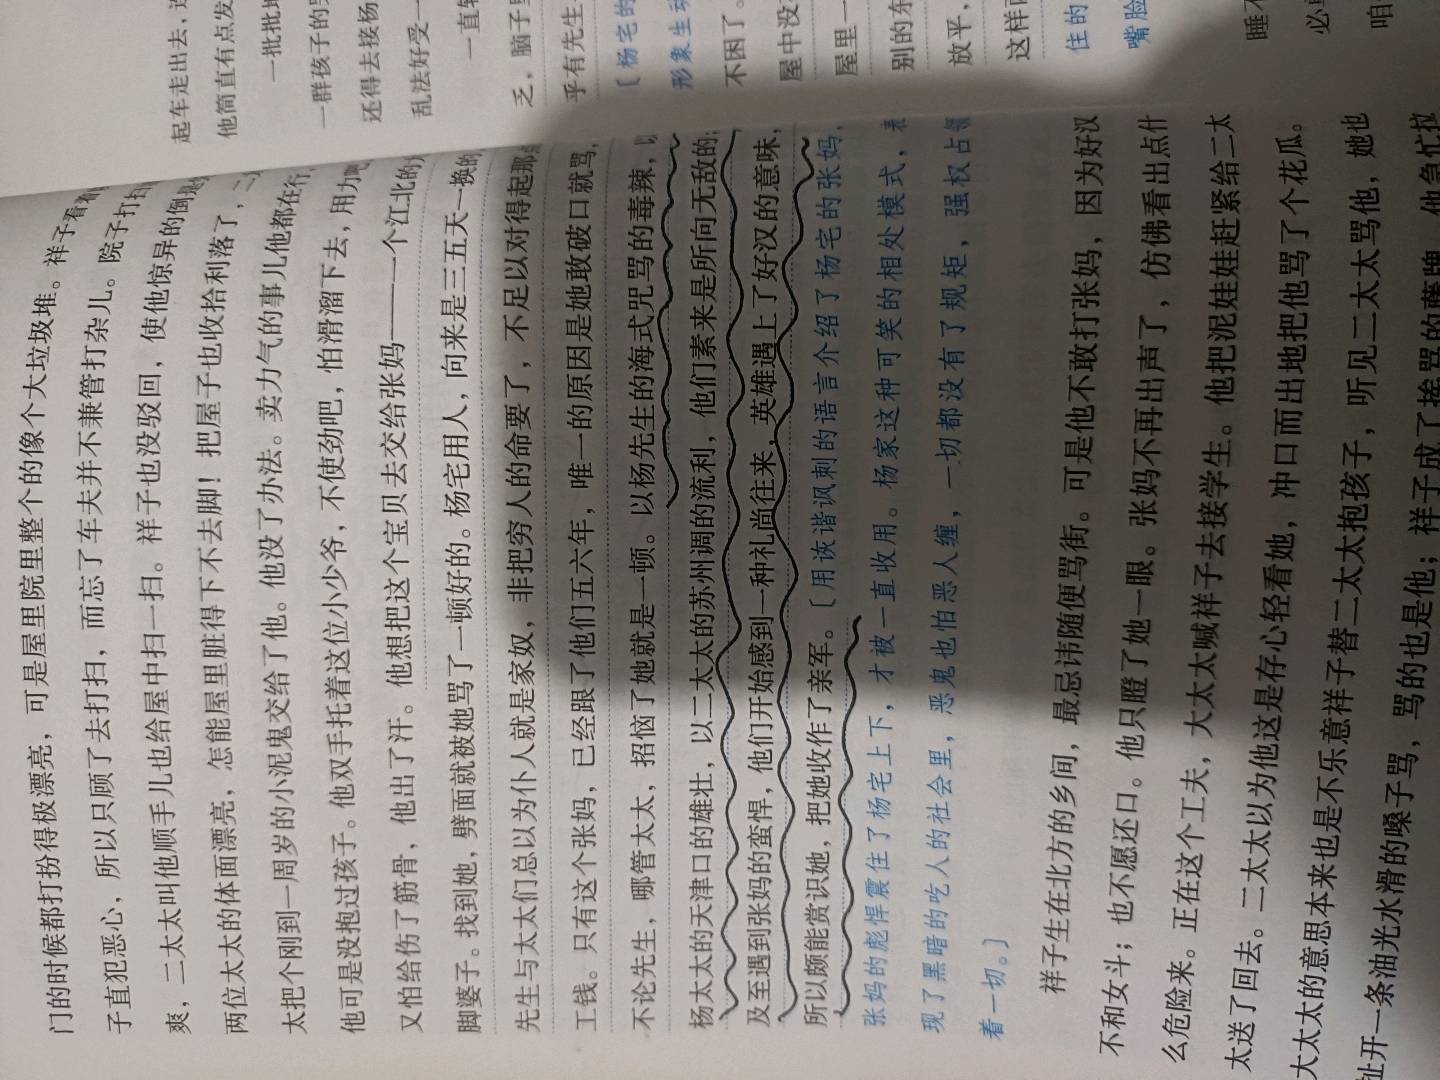 门的时候都打扮得极漂亮，可是屋里院里整个的像个大垃圾堆。祥子看着
子直犯恶心，所以只顾了去打扫，而忘了车夫并不兼管打杂儿。院子打扫
爽，二太太叫他顺手儿也给屋中扫一扫。祥子也没驳回，使他惊异的倒
两位太太的体面漂亮，怎能屋里脏得下不去脚！把屋子也收拾利落了，二
太把个刚到一周岁的小泥鬼交给了他。他没了办法。卖力气的事儿他都在行，
他可是没抱过孩子。他双手托着这位小少爷，不使劲吧，怕滑溜下去，用力
又怕给伤了筋骨，他出了汗。他想把这个宝贝去交给张妈——一个江北的
脚婆子。找到她，劈面就被她骂了一顿好的。杨宅用人，向来是三五天一换的，
先生与太太们总以为仆人就是家奴，非把穷人的命要了，不足以对得起那
工钱。只有这个张妈，已经跟了他们五六年，唯一的原因是她敢破口就骂，
不论先生，哪管太太，招恼了她就是一顿。以杨先生的海式咒骂的毒辣，以
杨太太的天津口的雄壮，以二太太的苏州调的流利，他们素来是所向无敌的；
及至遇到张妈的蛮悍，他们开始感到一种礼尚往来，英雄遇上了好汉的意味，
所以颇能赏识她，把她收作了亲军。〔用诙谐讽刺的语言介绍了杨宅的张妈，
张妈的彪悍震住了杨宅上下，才被一直收用。杨家这种可笑的相处模式，表
现了黑暗的吃人的社会里，恶鬼也怕恶人缠，一切都没有了规矩，强权占领
着一切。〕
祥子生在北方的乡间，最忌讳随便骂街。可是他不敢打张妈，因为好汉
不和女斗；也不愿还口。他只瞪了她一眼。张妈不再出声了，仿佛看出点什
么危险来。正在这个工夫，大太太喊祥子去接学生。他把泥娃娃赶紧给二太
太送了回去。二太太以为他这是存心轻看她，冲口而出地把他骂了个花瓜。
大太太的意思本来也是不乐意祥子替二太太抱孩子，听见二太太骂他，她也
扯开一条油光水滑的嗓子骂，骂的也是他；祥子成了挨骂的藤牌。他急忙拉
起车走出去，连
他简直有点发
一批批地
一群孩子的
还得去接杨
乱法好受一
一直转
乏，脑子里
乎有先生
〔杨宅的
形象生动
不困了。
屋中没
屋里一
别的东
放平，
这样
住的
嘴脸
睡不
必
咱